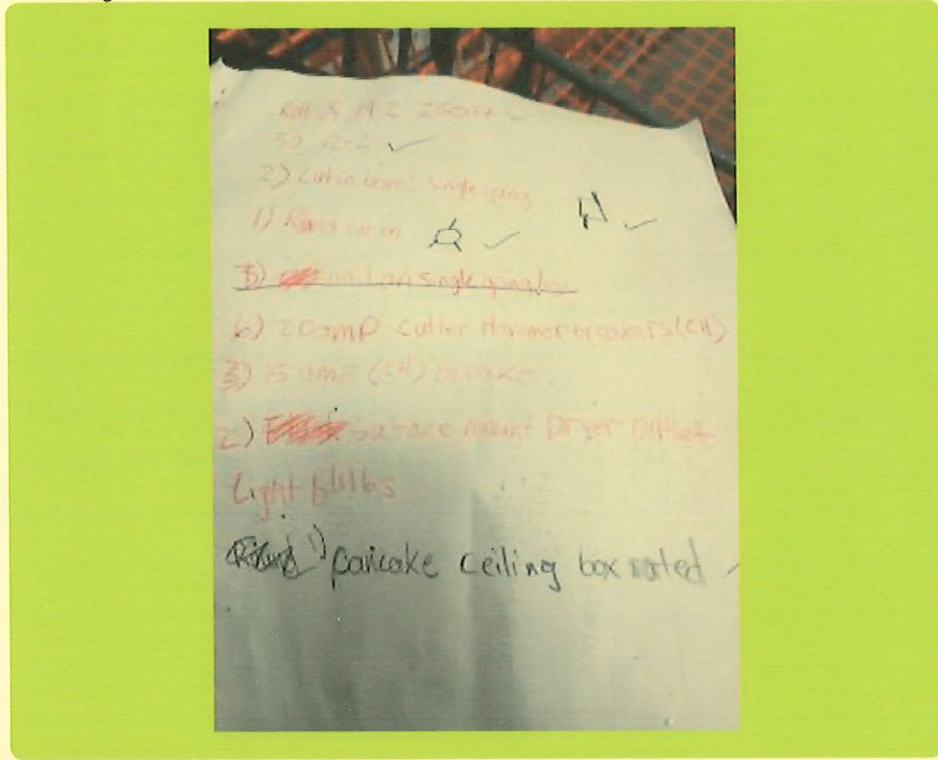 Roll of 14-2 250ft
5) 12-2
2) Cut in boxes single gang
1) Round cut in
5) nail on single gang box
6) 20amp Cutler Hammer breakers (CH)
3) 15 amp (CH) breakers
2) Surface mount Dryer Outlet
Light bulbs
1) pancake ceiling box rated